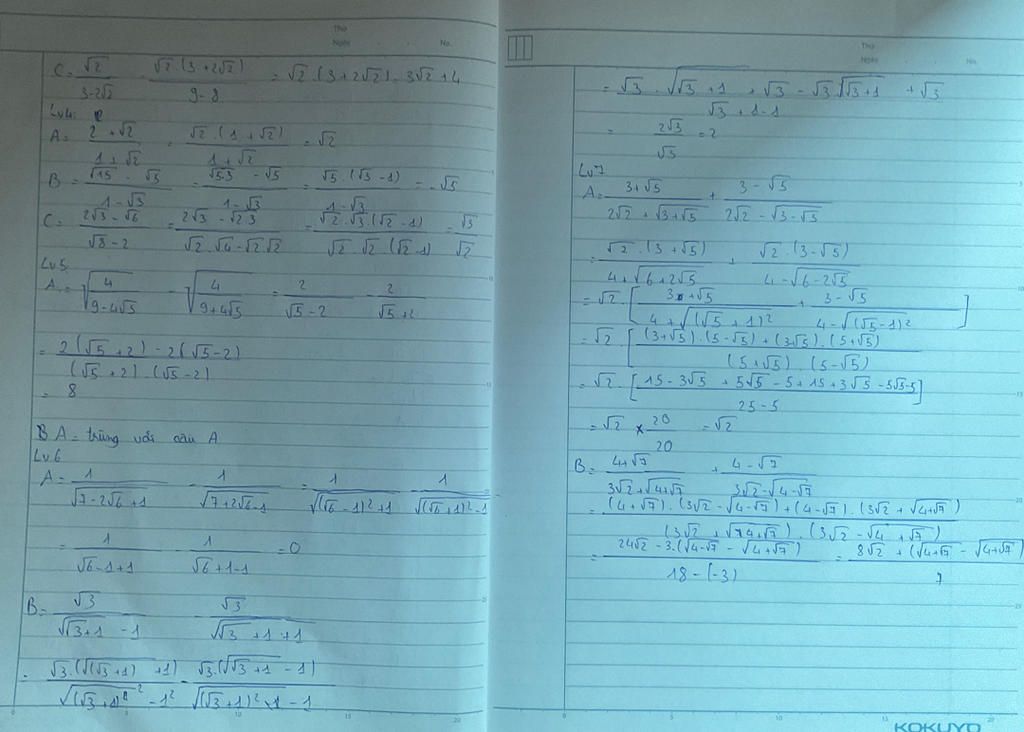 Thứ
Ngày . . No.
C = √2/(3-2√2) = √2.(3+2√2)/(9-8) = √2.(3+2√2) = 3√2+4
Lv4:
A = (2+√2)/(1+√2) = √2.(1+√2)/(1+√2) = √2
B = (√15-√5)/(1-√3) = (√5.3-√5)/(1-√3) = √5.(√3-1)/(1-√3) = -√5
C = (2√3-√6)/(√8-2) = (2√3-√2.3)/(√2.√4-√2.√2) = √2.√3.(√2-1)/(√2.√2(√2-1)) = √3/√2
Lv5:
A = √(4/(9-4√5)) - √(4/(9+4√5)) = 2/(√5-2) - 2/(√5+2)
= (2(√5+2)-2(√5-2))/((√5+2).(√5-2))
= 8
B A = trùng với câu A
Lv6
A = 1/(√(7-2√6)+1) - 1/(√(7+2√6)-1) = 1/(√((√6-1)²)+1) - 1/(√((√6+1)²)-1)
= 1/(√6-1+1) - 1/(√6+1-1) = 0
B = √3/(√(√3+1)-1) - √3/(√(√3+1)+1)
Thứ
Ngày . . No.
= (√3.√(√3+1)+√3-√3√(√3+1)+√3)/(√3+1-1)
= 2√3/√3 = 2
Lv7
A = (3+√5)/(2√2+√(3+√5)) + (3-√5)/(2√2-√(3-√5))
= √2.(3+√5)/(4+√(6+2√5)) + √2.(3-√5)/(4-√(6-2√5))
= √2.[(3+√5)/(4+√((√5+1)²)) + (3-√5)/(4-√((√5-1)²))]
= √2.[((3+√5).(5-√5)+(3-√5).(5+√5))/((5+√5).(5-√5))]
= √2.[(15-3√5+5√5-5+15+3√5-5√5-5)/(25-5)]
= √2 × 20/20 = √2
B = (4+√7)/(3√2+√(4+√7)) + (4-√7)/(3√2-√(4-√7))
= ((4+√7).(3√2-√(4-√7))+(4-√7).(3√2+√(4+√7)))/
= (24√2-3.(√(4-√7)-√(4+√7)))/(18-(-3)) = (8√2+(√(4+√7)-√(4+√7)))/7
KOKUYO